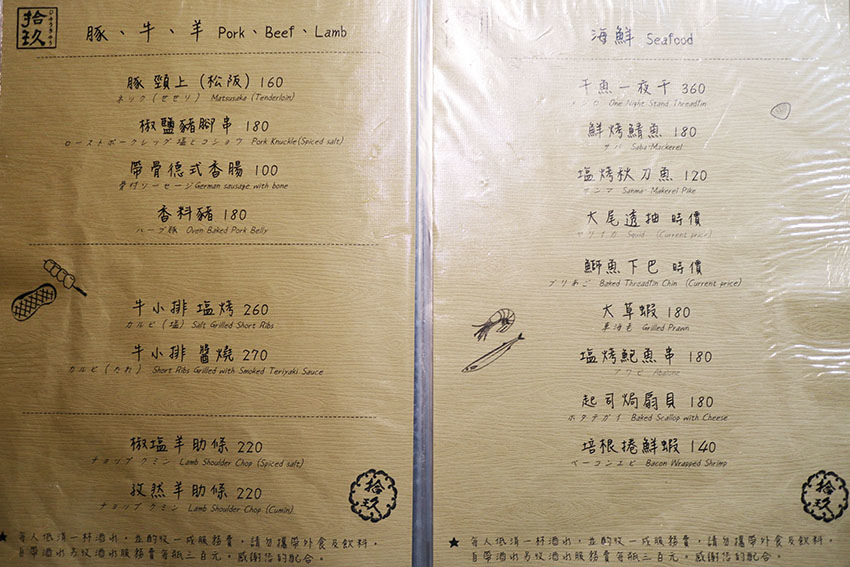 じゅうきゅう
拾
玖
豚、牛、羊 Pork、Beef、Lamb
豚頸上(松阪) 160
ネック(せせり) Matsusaka (Tenderloin)
椒鹽豬腳串 180
ローストポークレッグ塩とコショウ Pork Knuckle(Spiced salt)
帶骨德式香腸 100
骨付ソーセージ German sausage with bone
香料豬 180
ハーブ豚 Oven Baked Pork Belly
牛小排 塩烤 260
カルビ(塩) Salt Grilled Short Ribs
牛小排 醬燒 270
カルビ(たれ) Short Ribs Grilled with Smoked Teriyaki Sauce
椒塩羊肋條 220
チョップクミン Lamb Shoulder Chop (Spiced salt)
孜然羊肋條 220
チョップクミン Lamb Shoulder Chop (Cumin)
拾
玖
★ 每人低消一杯酒水,並酌收一成服務費,請勿攜帶外食及飲料,
自帶酒水另收酒水服務費每瓶三百元。感謝您的配合。
海鮮 Seafood
午魚一夜干 360
One Night Stand Threadfin
鮮烤鯖魚 180
サバ Saba-Mackerel
塩烤秋刀魚 120
サンマ Sanma-Makerel Pike
大尾透抽 時價
ヤリイカ Squid (Current price)
鰤魚下巴 時價
ブリあご Baked Threadfin Chin (Current price)
大草蝦 180
車海老 Grilled Prawn
塩烤鮑魚串 180
アワビ Abalone
起司焗扇貝 180
ホタテガイ Baked Scallop with Cheese
培根捲鮮蝦 140
ベーコンエビ Bacon Wrapped Shrimp
拾
玖
★ 每人低消一杯酒水,並酌收一成服務費,請勿攜帶外食及飲料,
自帶酒水另收酒水服務費每瓶三百元。感謝您的配合。